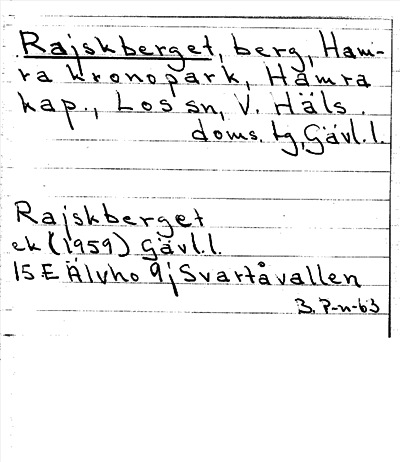 Rajskberget, berg, Ham-
ra kronopark, Hamra
kap., Los sn, V. Häls.
doms. tg, Gävl.l.
Rajskberget
ek (1959) Gävl.l.
15E Älvho 9j Svartåvallen
B. P-n-63